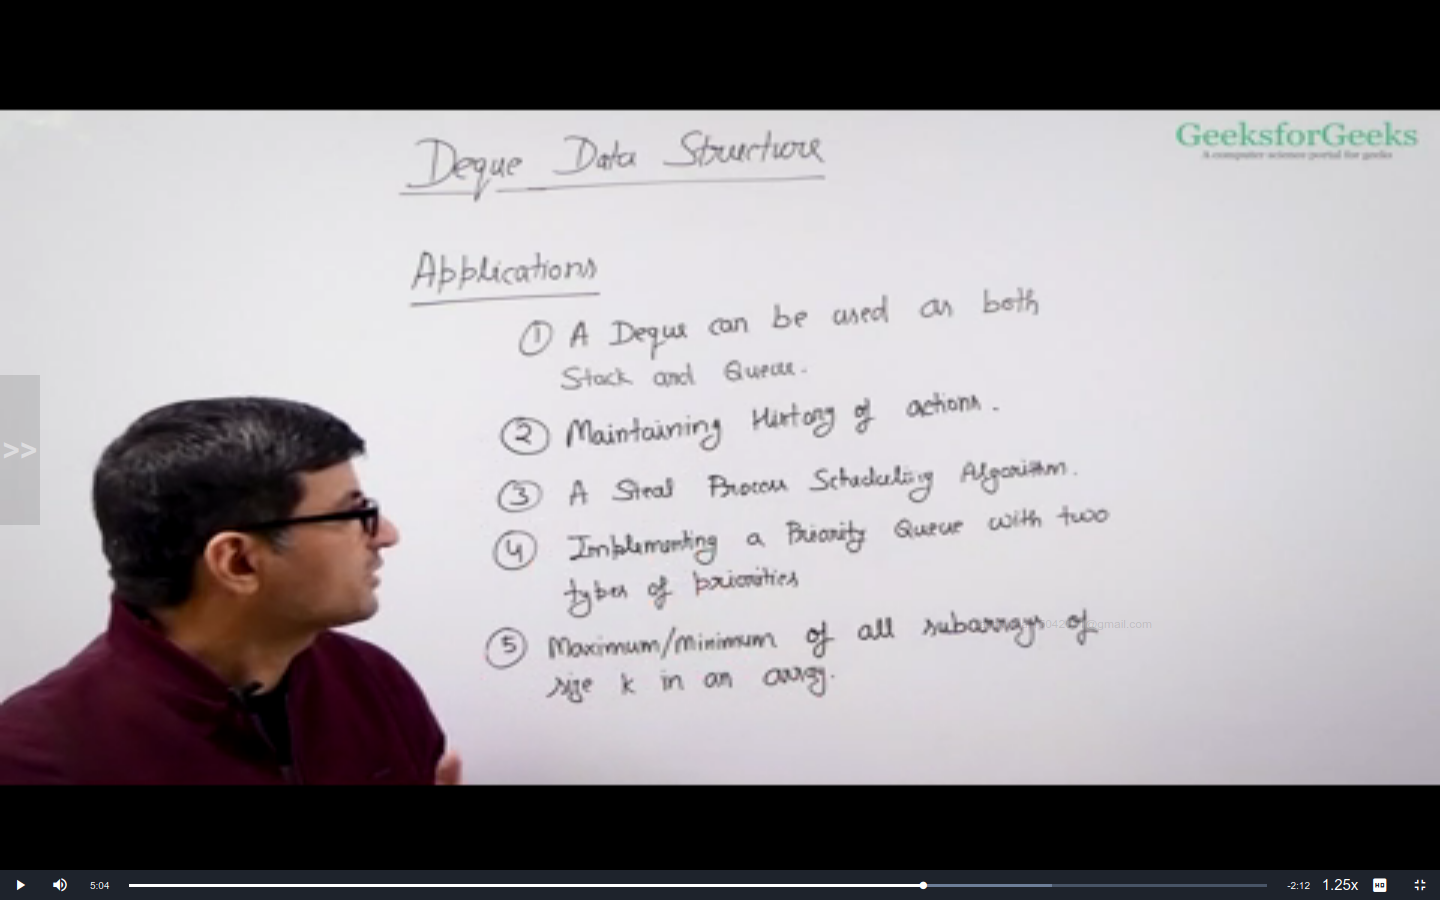 GeeksforGeeks
A computer science portal for geeks
Deque Data Structure
Applications
① A Deque can be used as both
Stack and Queue.
② Maintaining History of actions.
③ A Steal Process Scheduling Algorithm.
④ Implementing a Priority Queue with two
types of priorities
⑤ Maximum/Minimum of all subarrays of
size k in an array.
@gmail.com
>>
5:04
-2:12
1.25x
HD